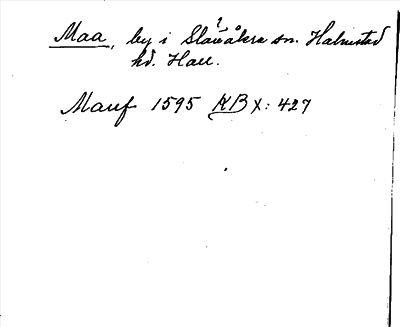 Maa, by i Slawåkra sn. Halmstad
hd. Hall.
Mauf 1595 KB X: 427